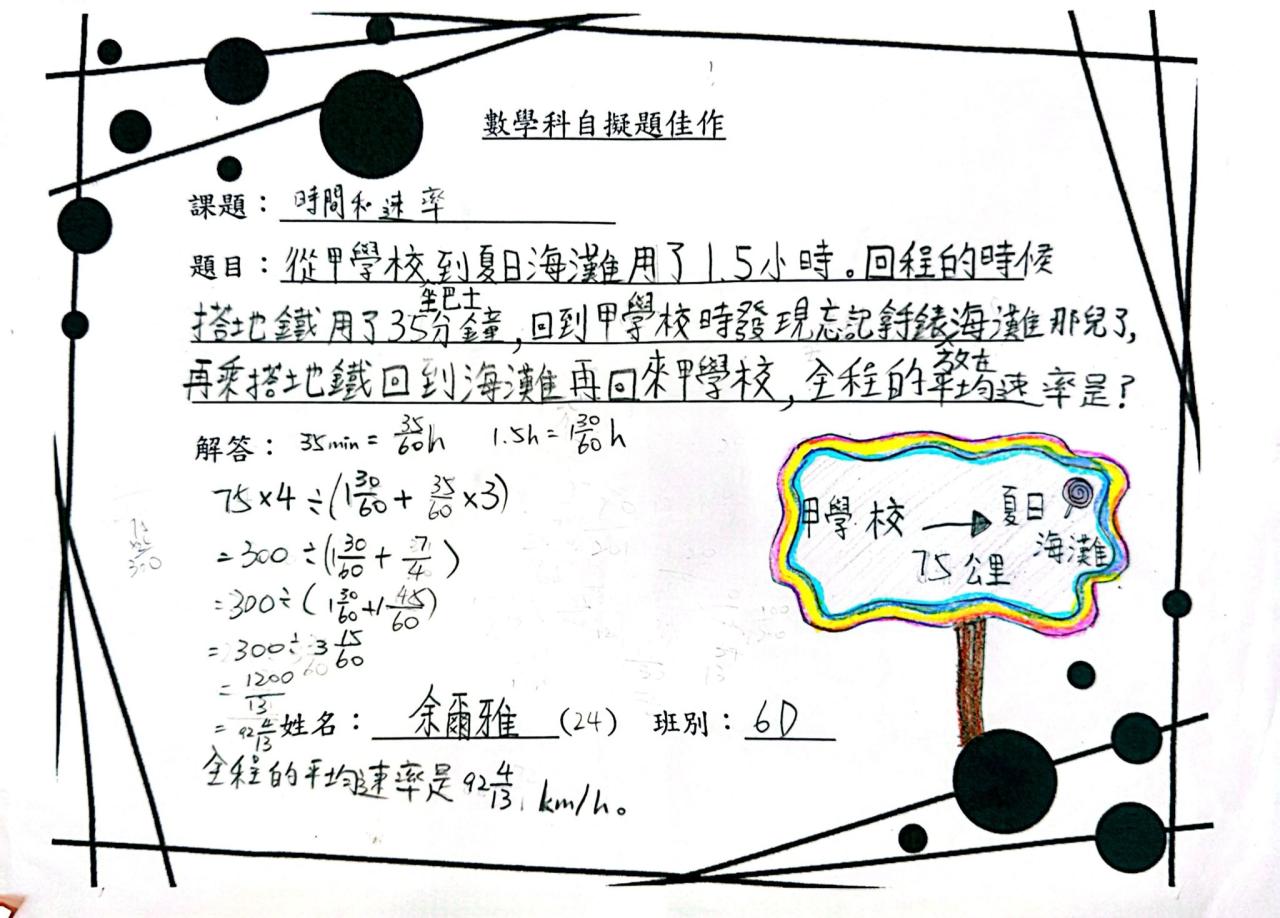 數學科自擬題佳作
課題：時間和速率
題目：從甲學校到夏日海灘用了1.5小時。回程的時候
坐巴士
搭地鐵用了35分鐘，回到甲學校時發現忘記拿手錶海灘那兒了，
放在
再乘搭地鐵回到海灘再回來甲學校，全程的平均速率是？
解答：35min = 35/60 h 1.5h = 1 30/60 h
75×4÷(1 30/60 + 35/60 ×3)
= 300 ÷(1 30/60 + 7/4)
= 300÷(1 30/60 +1 45/60)
= 300÷3 15/60
= 1200/13
= 92 4/13
甲學校 → 夏日
海灘
75公里
姓名：余爾雅 (24) 班別：6D
全程的平均速率是92 4/13 km/h。